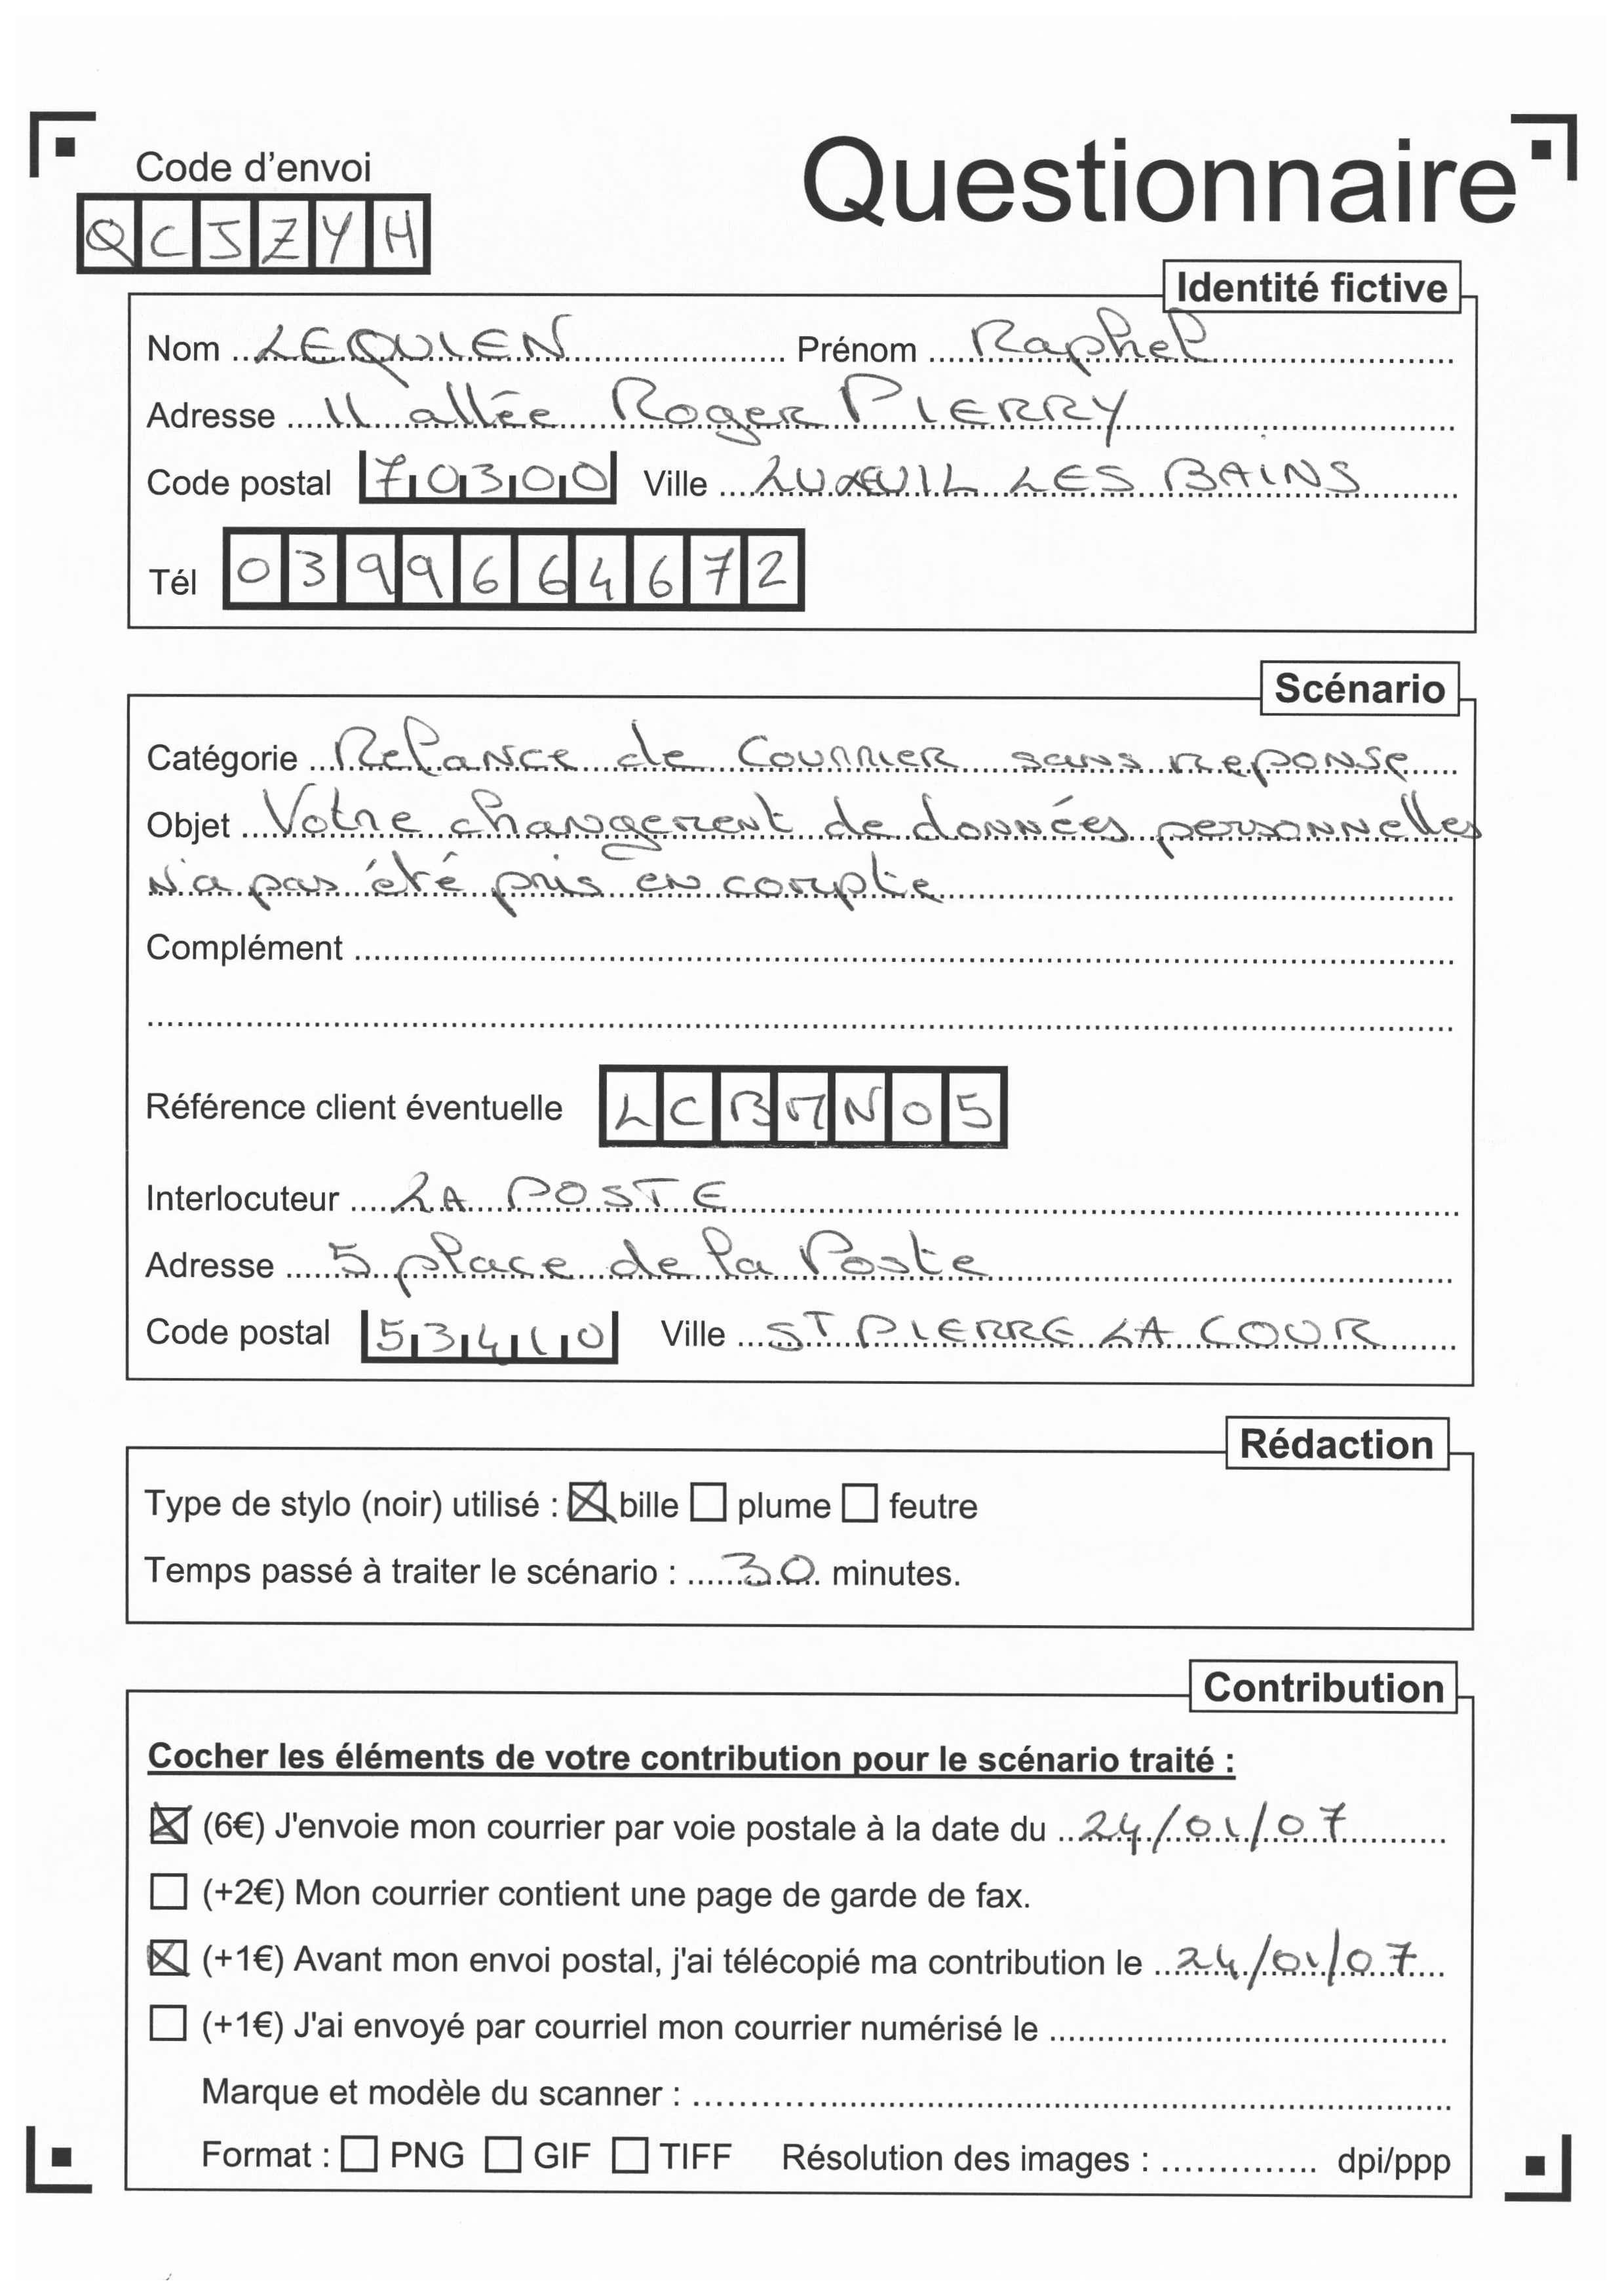 Code d'envoi
Questionnaire
QCJZYH
Identité fictive
Nom LEQUIEN Prénom Raphel
Adresse 11 allée Roger PIERRY
Code postal 70300 Ville LUXEUIL LES BAINS
Tél 0399664672
Scénario
Catégorie Relance de Courrier sans reponse
Objet Votre changement de données personnelles
n'a pas été pris en compte
Complément
Référence client éventuelle LCBMN05
Interlocuteur LA POSTE
Adresse 5 place de la Poste
Code postal 53410 Ville ST PIERRE LA COUR
Rédaction
Type de stylo (noir) utilisé : bille plume feutre
Temps passé à traiter le scénario : 30 minutes.
Contribution
Cocher les éléments de votre contribution pour le scénario traité :
(6€) J'envoie mon courrier par voie postale à la date du 24/01/07
(+2€) Mon courrier contient une page de garde de fax.
(+1€) Avant mon envoi postal, j'ai télécopié ma contribution le 24/01/07
(+1€) J'ai envoyé par courriel mon courrier numérisé le
Marque et modèle du scanner :
Format : PNG GIF TIFF Résolution des images : dpi/ppp